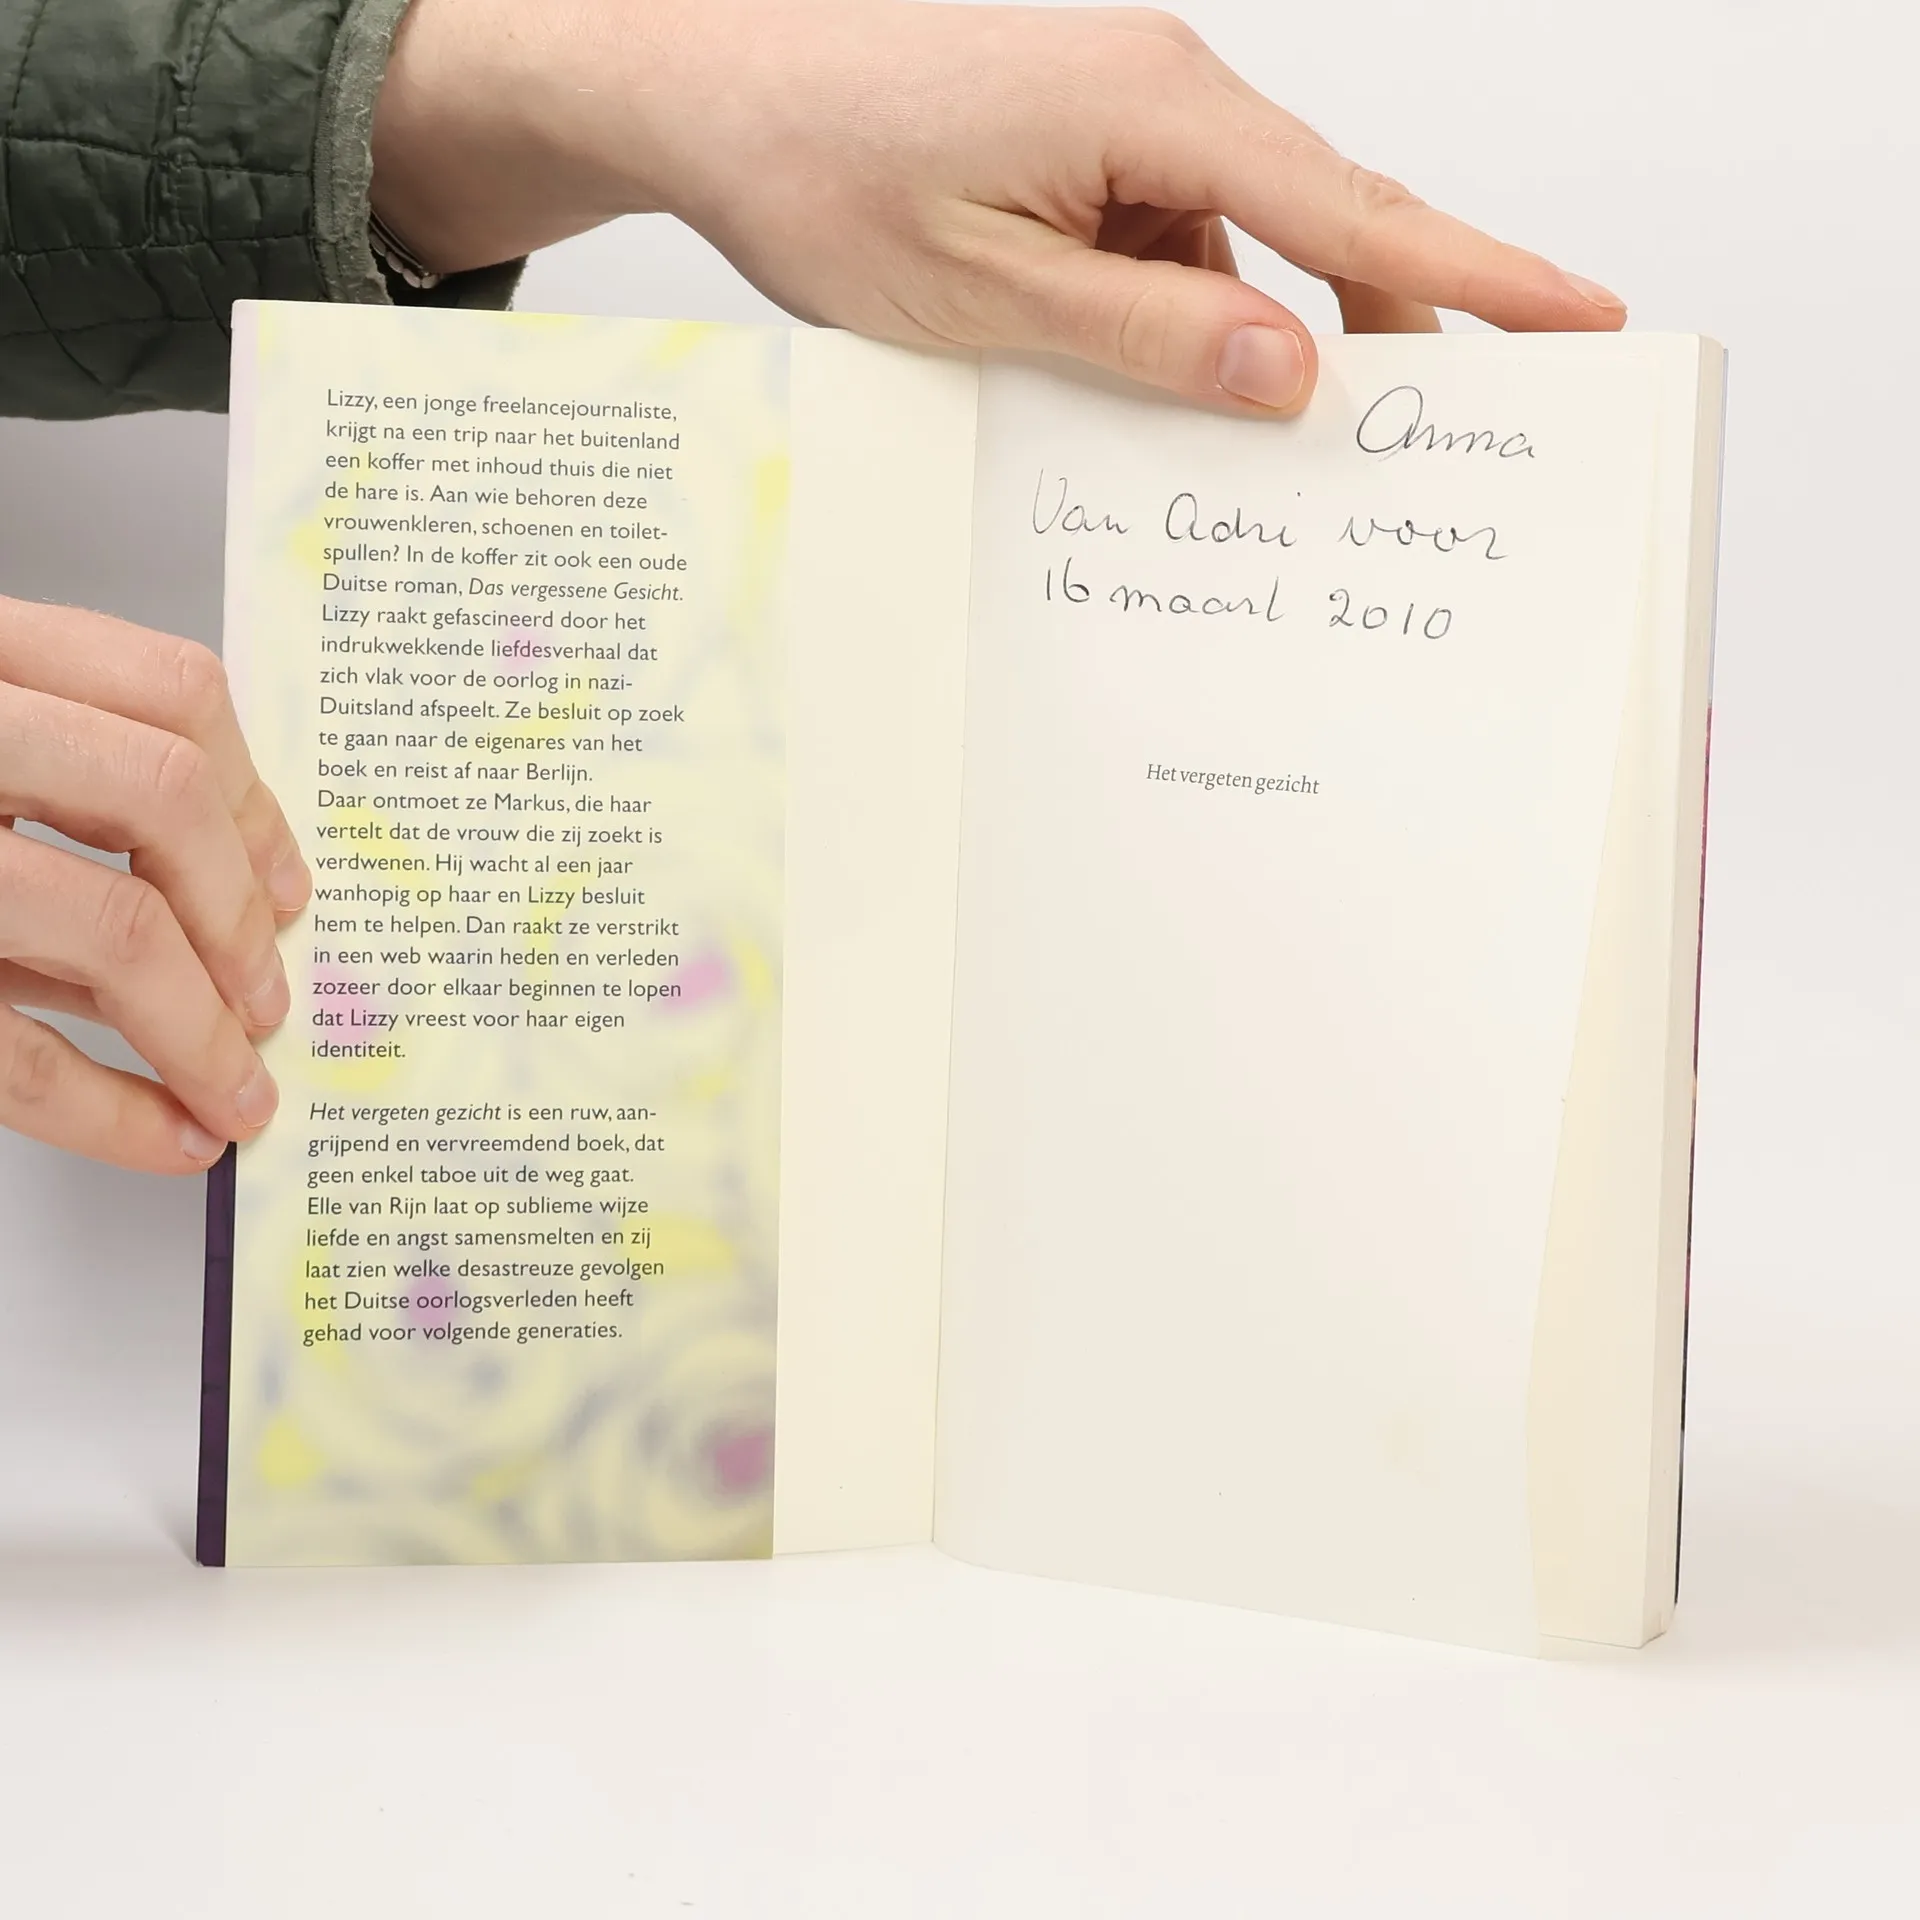 Lizzy, een jonge freelancejournaliste,
krijgt na een trip naar het buitenland
een koffer met inhoud thuis die niet
de hare is. Aan wie behoren deze
vrouwenkleren, schoenen en toilet-
spullen? In de koffer zit ook een oude
Duitse roman, Das vergessene Gesicht.
Lizzy raakt gefascineerd door het
indrukwekkende liefdesverhaal dat
zich vlak voor de oorlog in nazi-
Duitsland afspeelt. Ze besluit op zoek
te gaan naar de eigenares van het
boek en reist af naar Berlijn.
Daar ontmoet ze Markus, die haar
vertelt dat de vrouw die zij zoekt is
verdwenen. Hij wacht al een jaar
wanhopig op haar en Lizzy besluit
hem te helpen. Dan raakt ze verstrikt
in een web waarin heden en verleden
zozeer door elkaar beginnen te lopen
dat Lizzy vreest voor haar eigen
identiteit.
Het vergeten gezicht is een ruw, aan-
grijpend en vervreemdend boek, dat
geen enkel taboe uit de weg gaat.
Elle van Rijn laat op sublieme wijze
liefde en angst samensmelten en zij
laat zien welke desastreuze gevolgen
het Duitse oorlogsverleden heeft
gehad voor volgende generaties.
Anna
Van Adri voor
16 maart 2010
Het vergeten gezicht